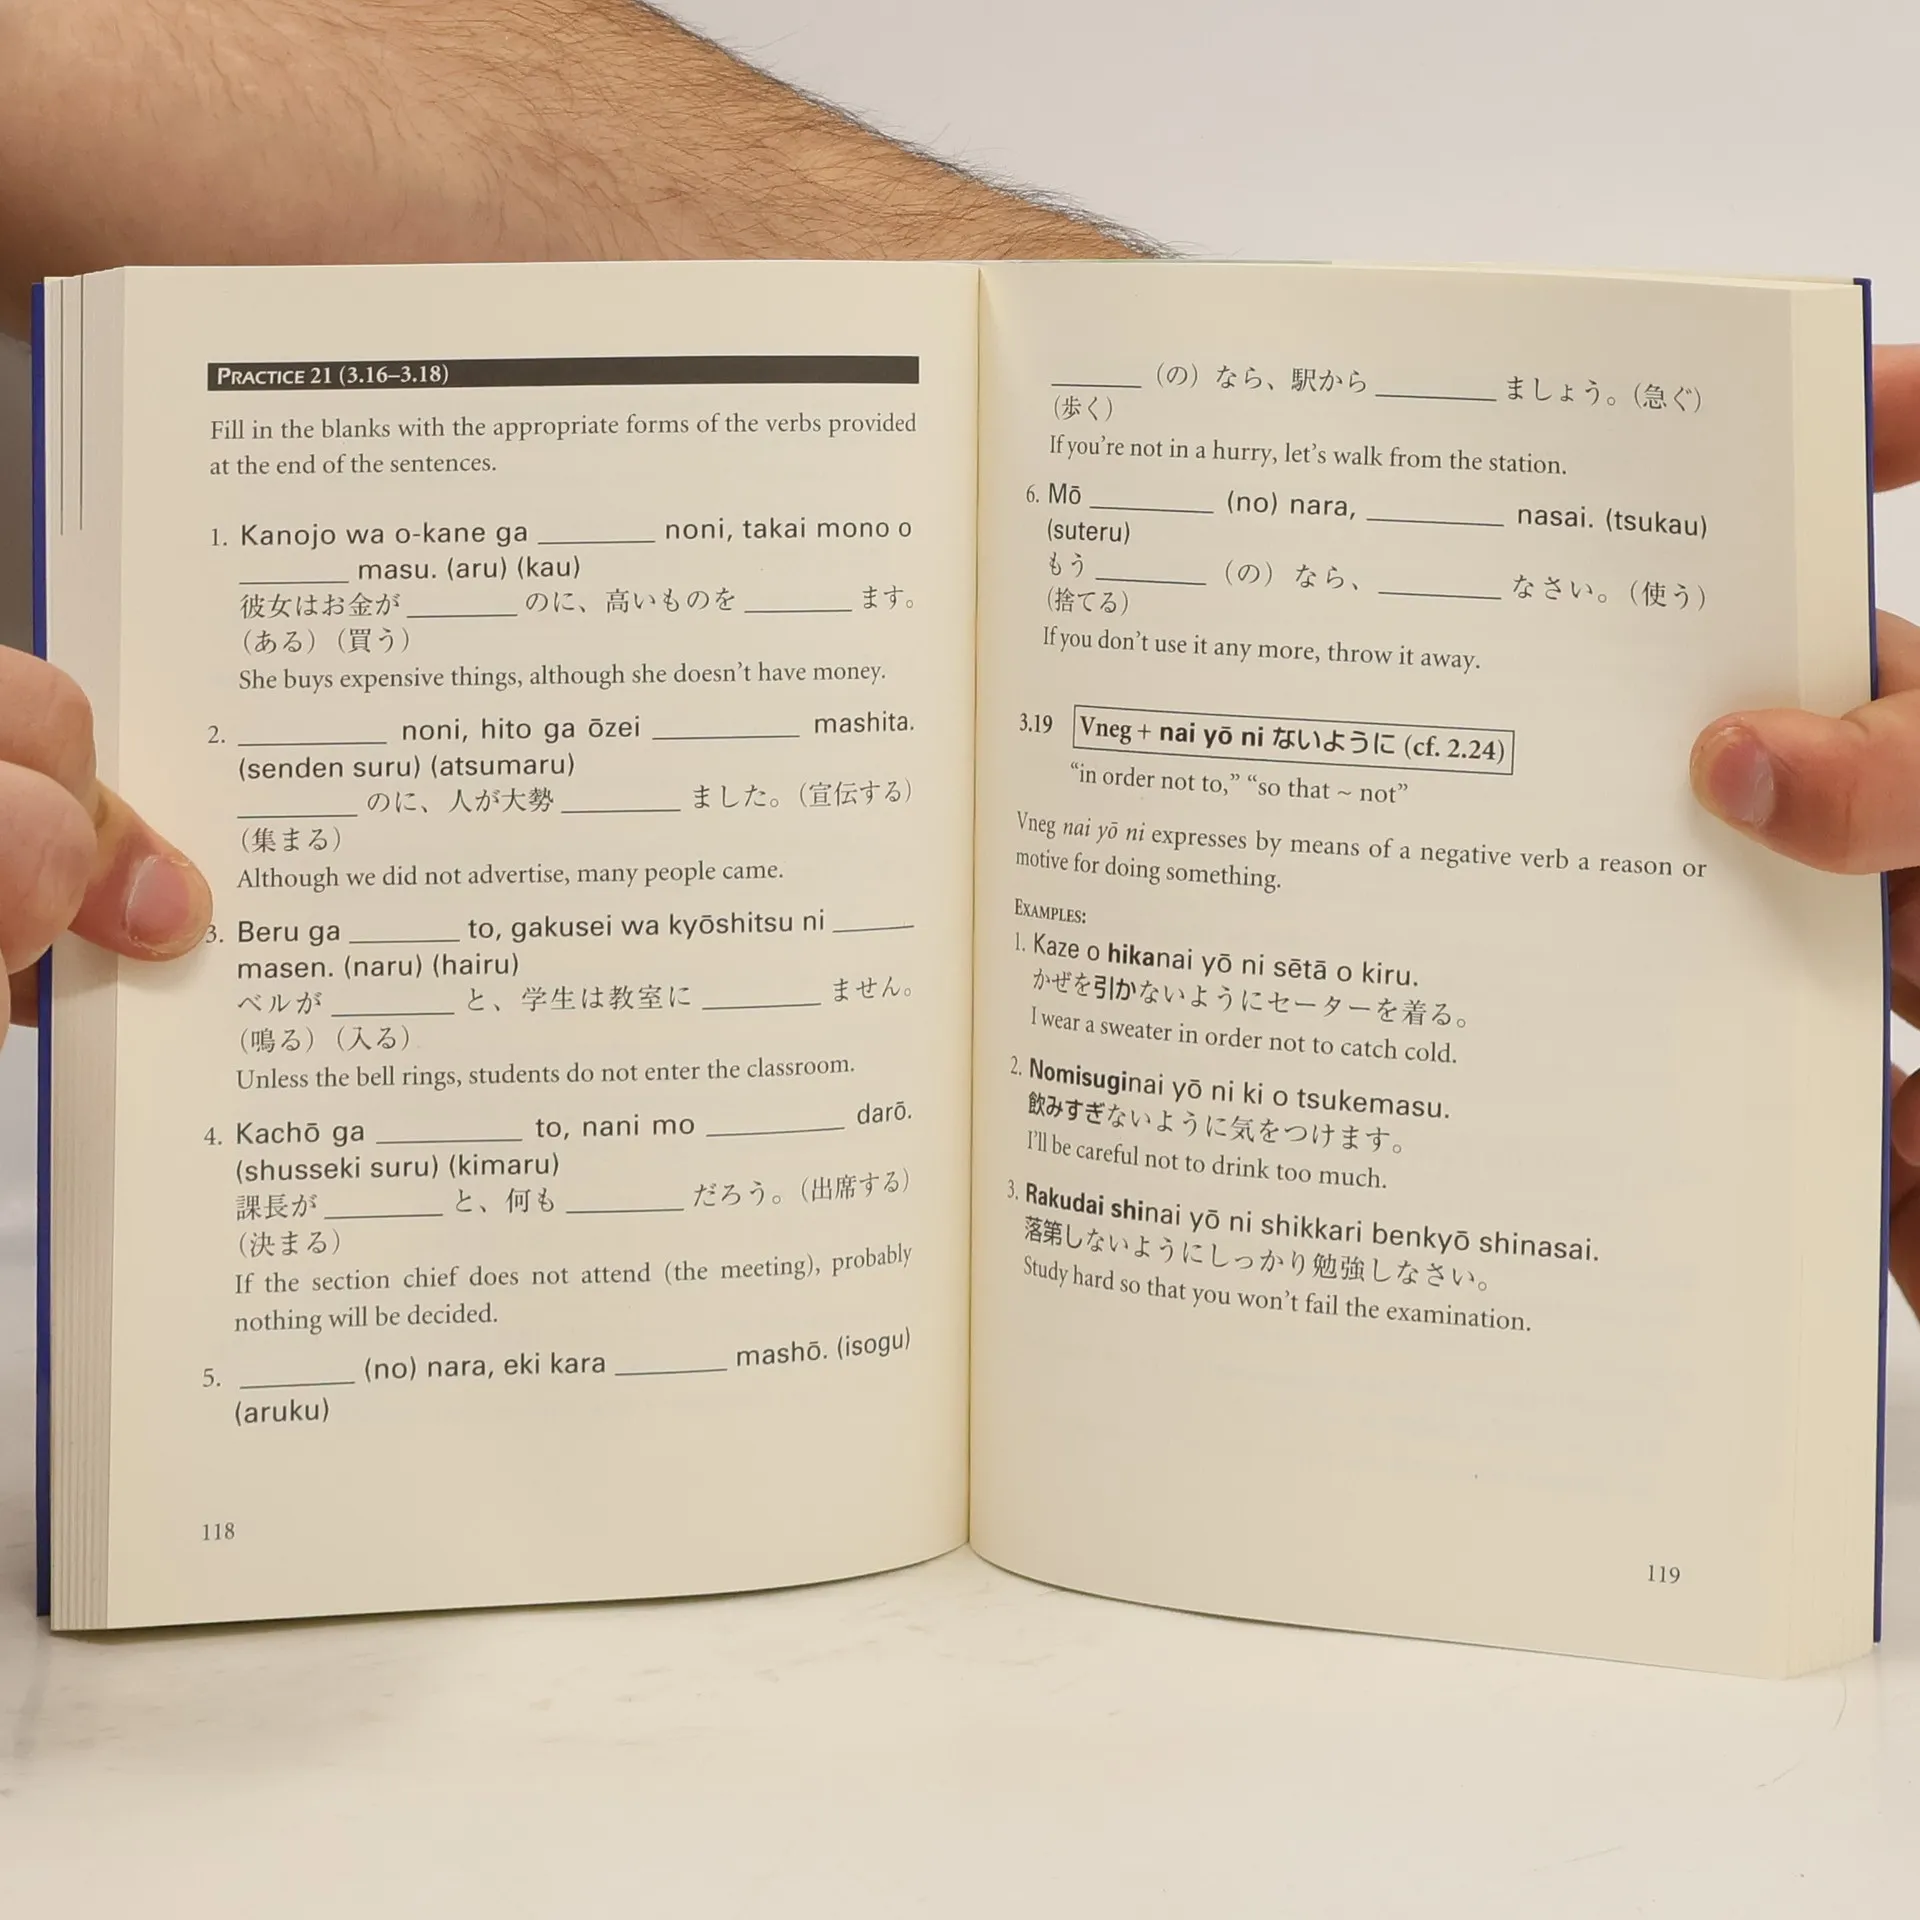 PRACTICE 21 (3.16–3.18)
Fill in the blanks with the appropriate forms of the verbs provided
at the end of the sentences.
1. Kanojo wa o-kane ga ________ noni, takai mono o
________ masu. (aru) (kau)
彼女はお金が ________ のに、高いものを ________ ます。
（ある）（買う）
She buys expensive things, although she doesn’t have money.
2. ________ noni, hito ga ōzei ________ mashita.
(senden suru) (atsumaru)
________ のに、人が大勢 ________ ました。（宣伝する）
（集まる）
Although we did not advertise, many people came.
3. Beru ga ________ to, gakusei wa kyōshitsu ni ________
masen. (naru) (hairu)
ベルが ________ と、学生は教室に ________ ません。
（鳴る）（入る）
Unless the bell rings, students do not enter the classroom.
4. Kachō ga ________ to, nani mo ________ darō.
(shusseki suru) (kimaru)
課長が ________ と、何も ________ だろう。（出席する）
（決まる）
If the section chief does not attend (the meeting), probably
nothing will be decided.
5. ________ (no) nara, eki kara ________ mashō. (isogu)
(aruku)
118
________ （の）なら、駅から ________ ましょう。（急ぐ）
（歩く）
If you’re not in a hurry, let’s walk from the station.
6. Mō ________ (no) nara, ________ nasai. (tsukau)
(suteru)
もう ________ （の）なら、 ________ なさい。（使う）
（捨てる）
If you don’t use it any more, throw it away.
3.19 Vneg + nai yō ni ないように (cf. 2.24)
“in order not to,” “so that ~ not”
Vneg nai yō ni expresses by means of a negative verb a reason or
motive for doing something.
EXAMPLES:
1. Kaze o hikanai yō ni sētā o kiru.
かぜを引かないようにセーターを着る。
I wear a sweater in order not to catch cold.
2. Nomisuginai yō ni ki o tsukemasu.
飲みすぎないように気をつけます。
I’ll be careful not to drink too much.
3. Rakudai shinai yō ni shikkari benkyō shinasai.
落第しないようにしっかり勉強しなさい。
Study hard so that you won’t fail the examination.
119